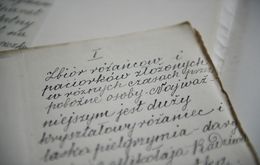 I
Zbiór różańców i
paciorków złożonych
w różnych czasach przez
pobożne osoby. Najważ
niejszym jest duży
kryształowy różaniec i
laska pielgrzymia – dary
Mikołaja Radziwi